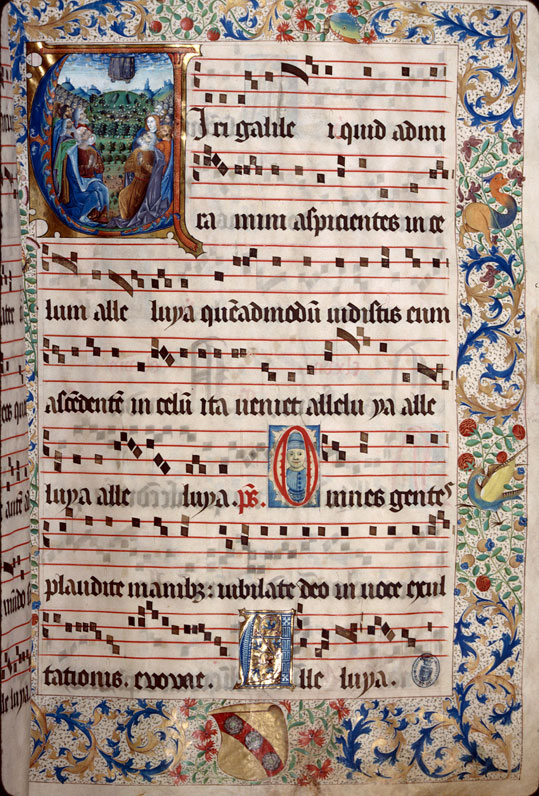 Viri galilei quid admi
ramini aspicientes in ce
lum alle luya quēadmodū uidistis eum
ascēdentē in celū ita ueniet allelu ya alle
luya alle luya. ps. Omnes gentes
plaudite manibz: iubilate deo in uoce exul
tationis. euouae. Alle luya.